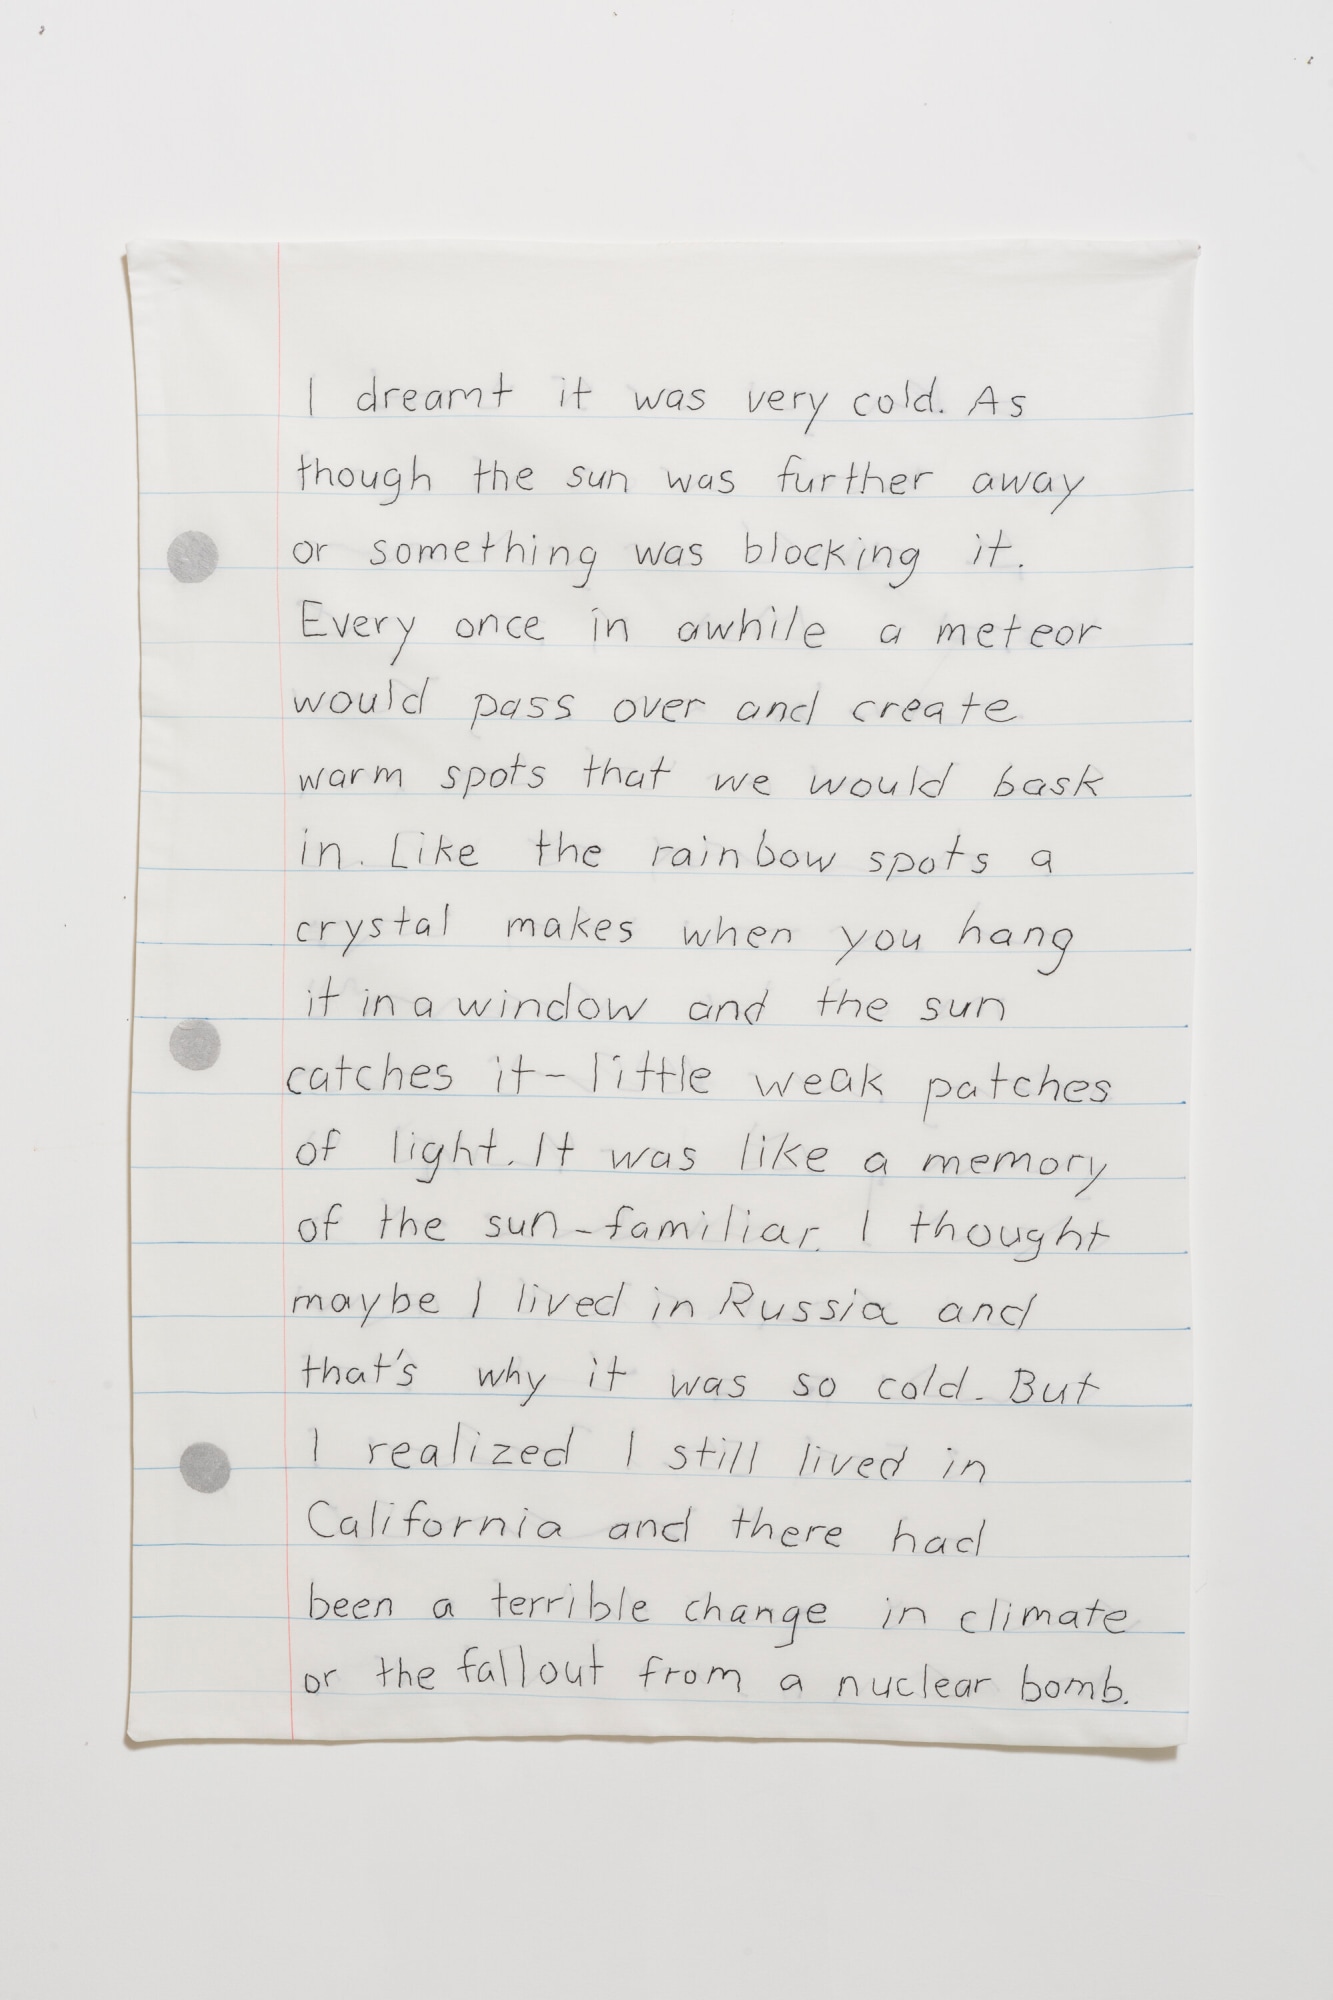 I dreamt it was very cold. As
though the sun was further away
or something was blocking it.
Every once in awhile a meteor
would pass over and create
warm spots that we would bask
in. Like the rainbow spots a
crystal makes when you hang
it in a window and the sun
catches it - little weak patches
of light. It was like a memory
of the sun - familiar. I thought
maybe I lived in Russia and
that's why it was so cold. But
I realized I still lived in
California and there had
been a terrible change in climate
or the fallout from a nuclear bomb.